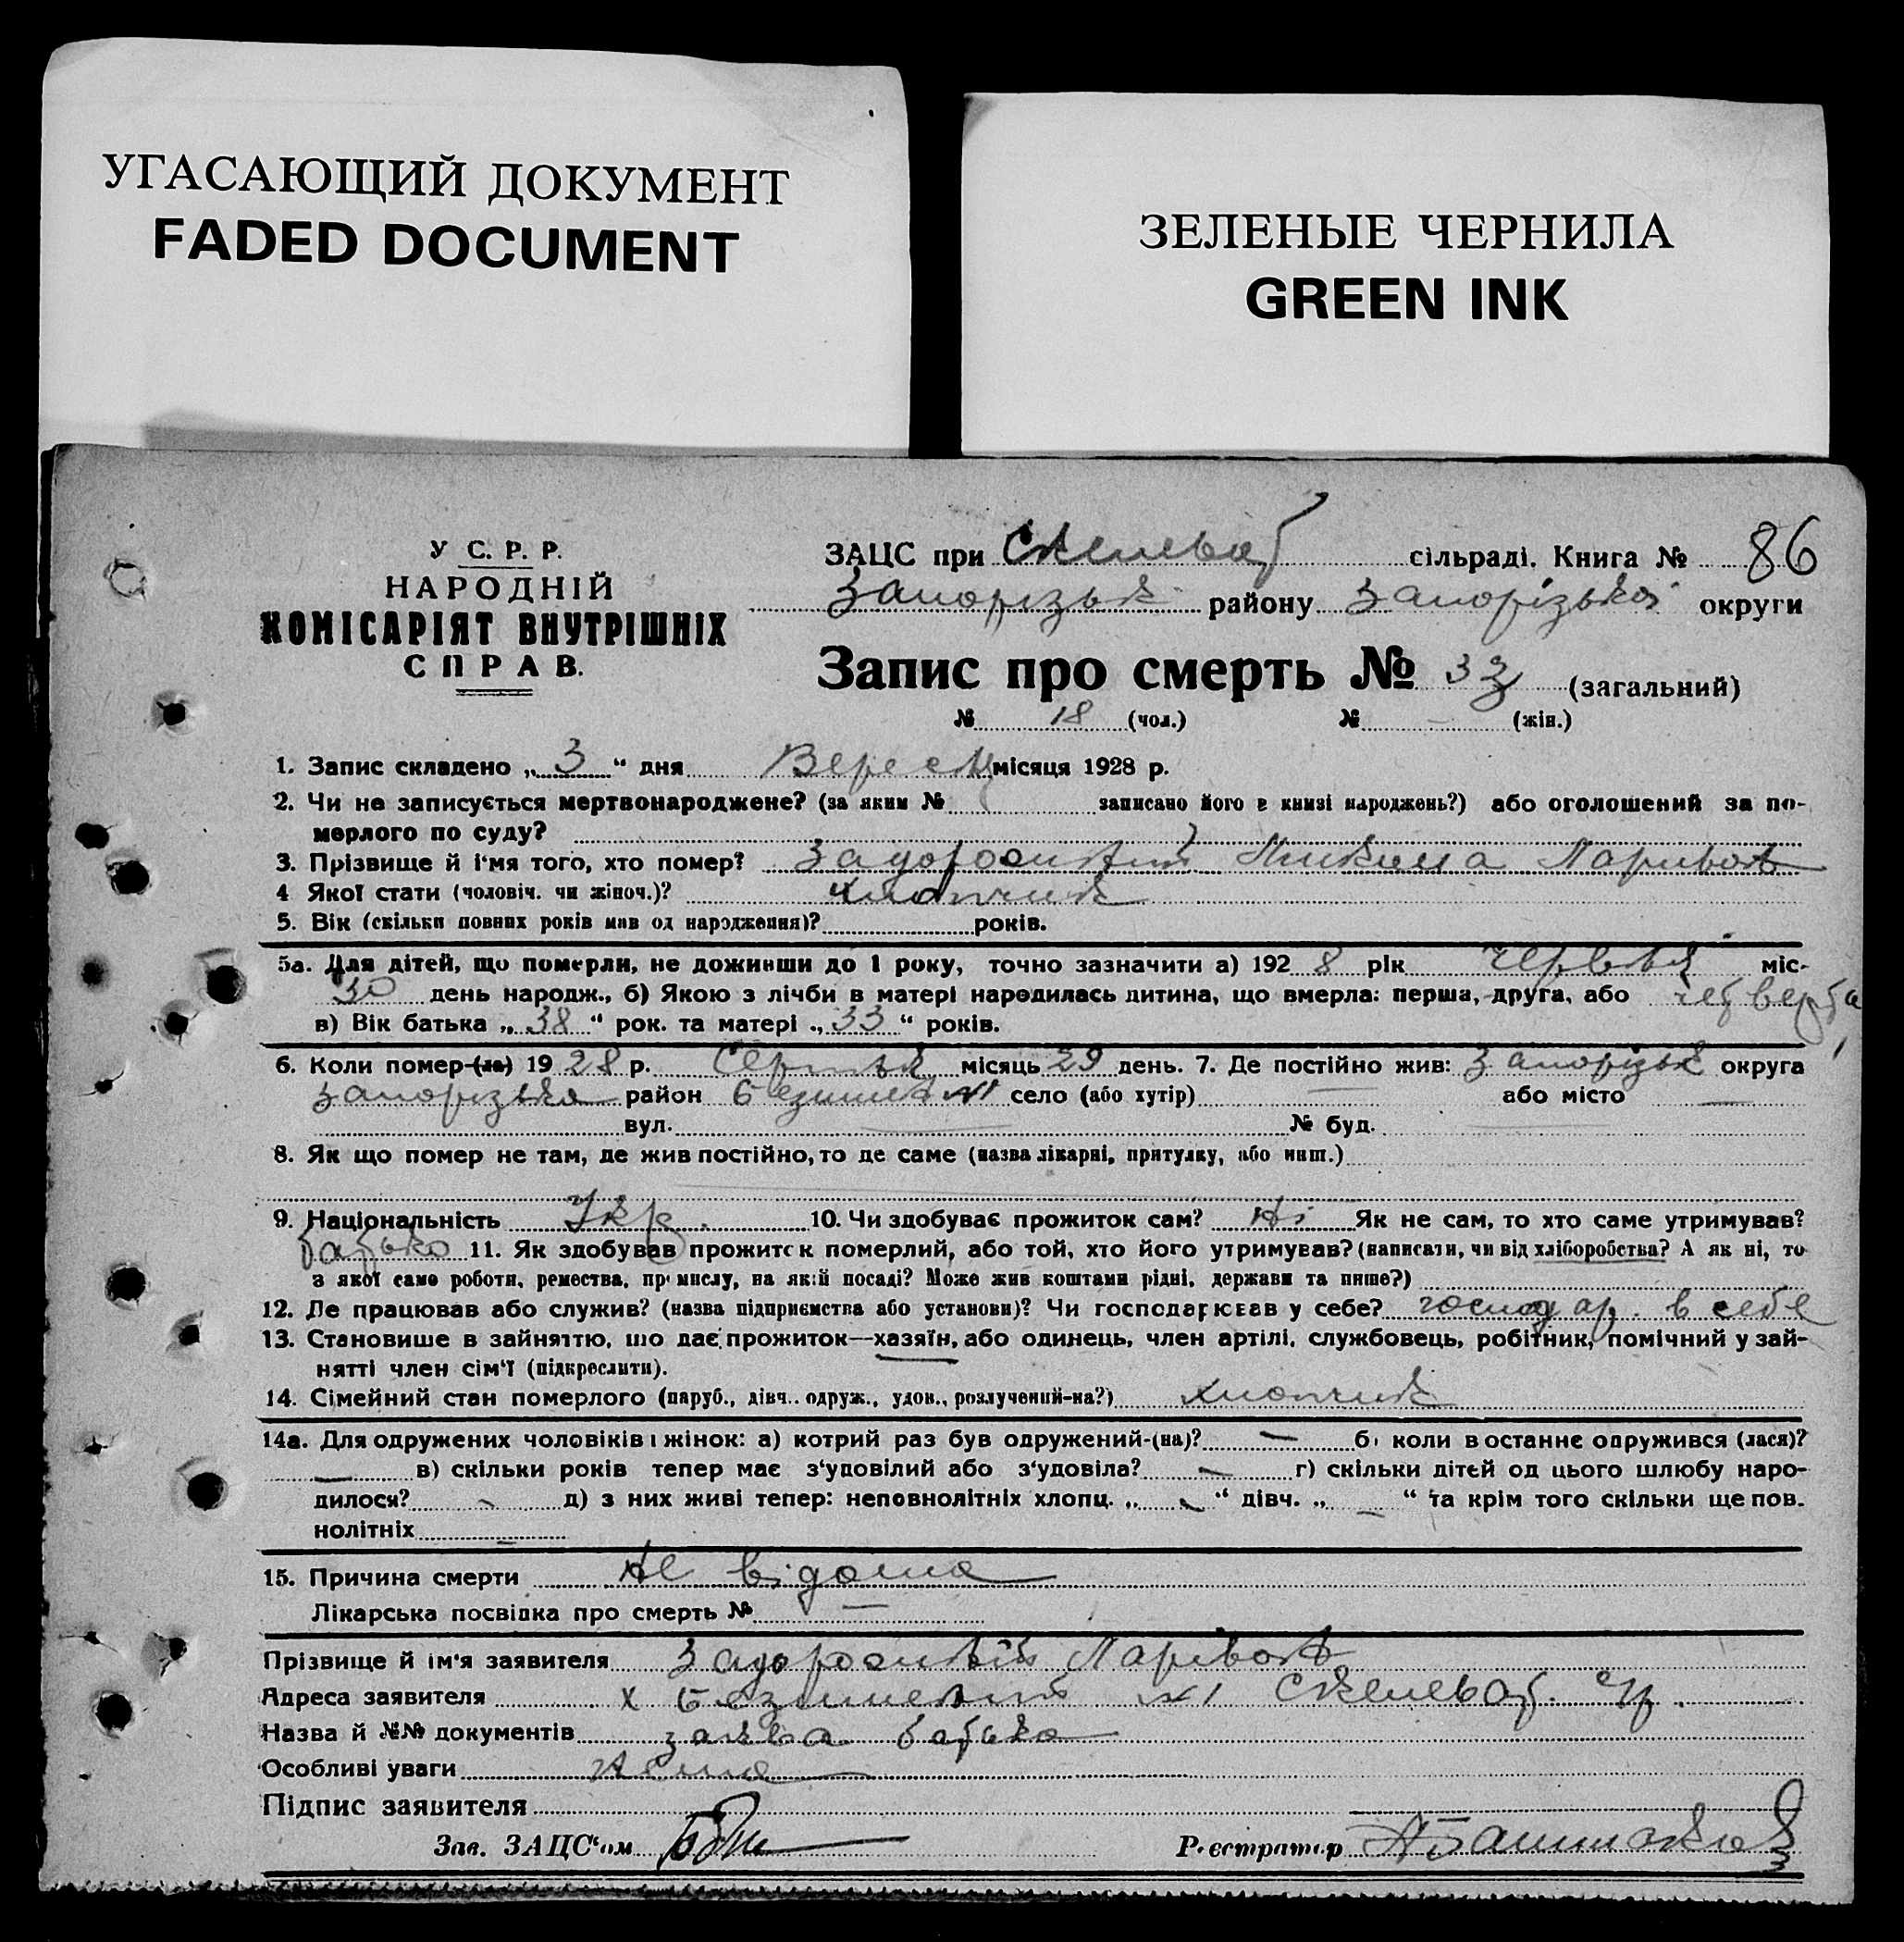 УГАСАЮЩИЙ ДОКУМЕНТ
FADED DOCUMENT
ЗЕЛЕНЫЕ ЧЕРНИЛА
GREEN INK
У С. Р. Р.
НАРОДНІЙ
КОМІСАРІЯТ ВНУТРІШНІХ
СПРАВ.
ЗАЦС при Скелеват сільраді. Книга № 86
Запорізьк району Запорізької округи
Запис про смерть № 33 (загальний)
№ 18 (чол.) № — (жін.)
1. Запис складено „ 3 “ дня Вересн місяця 1928 р.
2. Чи не записується мертвонароджене? (за яким № записано його в книзі народжень?) або оголошений за по-
мерлого по суду?
3. Прізвище й і‘мя того, хто помер? Микола Ларивон
4 Якої стати (чоловіч. чи жіноч.)? хлопчик
5. Вік (скільки повних років мав од народження)? років.
5а. Для дітей, що померли, не доживши до 1 року, точно зазначити а) 192 8 рік Червня міс-
30 день народж., б) Якою з лічби в матері народилась дитина, що вмерла: перша, друга, або четверта
в) Вік батька „ 38 “ рок. та матері „ 33 “ років.
6. Коли помер-(ла) 19 28 р. Серпня місяць 29 день. 7. Де постійно жив: Запорізьк округа
Запорізька район село (або хутір) — або місто —
вул. — № буд. —
8. Як що помер не там, де жив постійно, то де саме (назва лікарні, притулку, або инш.)
9. Національність Укр. 10. Чи здобуває прожиток сам? Ні Як не сам, то хто саме утримував?
батько 11. Як здобував прожиток померлий, або той, хто його утримував? (написати, чи від хліборобства? А як ні, то
з якої саме роботи, ремества, промислу, на якій посаді? Може жив коштами рідні, держави та инше?)
12. Де працював або служив? (назва підприємства або установи)? Чи господарював у себе? господар. в себе
13. Становише в зайняттю, що дає прожиток—хазяїн, або одинець, член артілі, службовець, робітник, помічний у зай-
нятті член сім‘ї (підкреслити).
14. Сімейний стан померлого (паруб., дівч.. одруж., удов., розлучений-на?) хлопчик
14а. Для одружених чоловіків і жінок: а) котрий раз був одружений-(на)? — б) коли в останнє одружився (лася)?
— в) скільки років тепер має з‘удовілий або з‘удовіла? — г) скільки дітей од цього шлюбу наро-
дилося? - д) з них живі тепер: неповнолітніх хлопц. „ - “ дівч. „ — “ та крім того скільки ще пов.
нолітніх —
15. Причина смерти не відома
Лікарська посвідка про смерть № —
Прізвище й ім‘я заявителя Ларивон
Адреса заявителя х №1 Скелеват. с/р.
Назва й №№ документів заява батька
Особливі уваги нема
Підпис заявителя
Зав. ЗАЦС‘ом Реєстратор